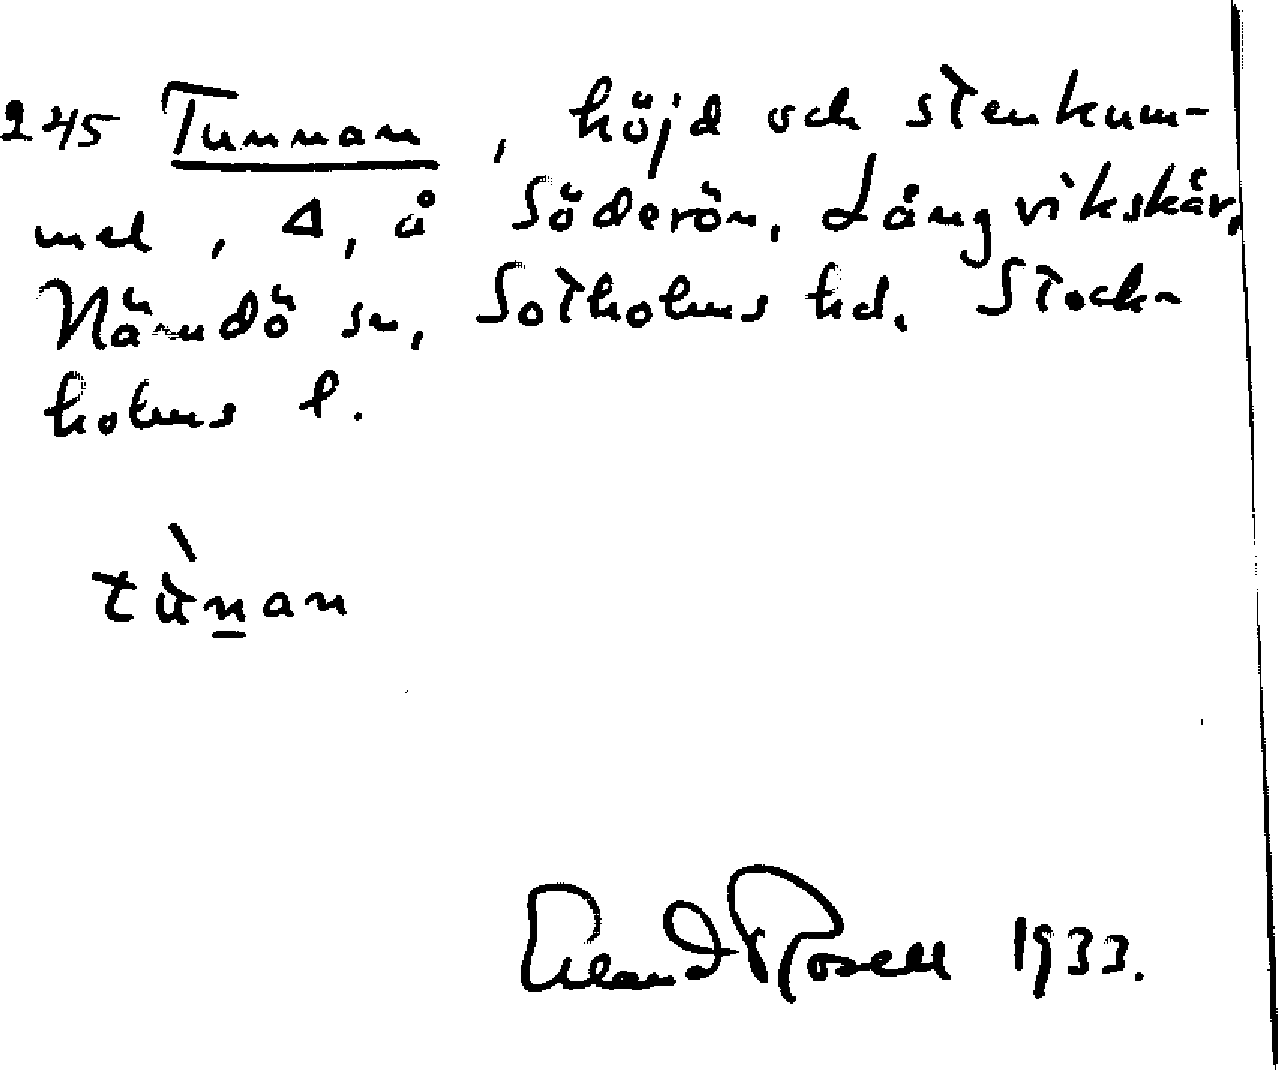 245 Tunnan, höjd och stenkum-
mel, Δ, å Söderön, Långvikskär,
Nämdö sn, Sotholms hd. Stock-
holms l.
tùnan
Erland Rosell 1933.